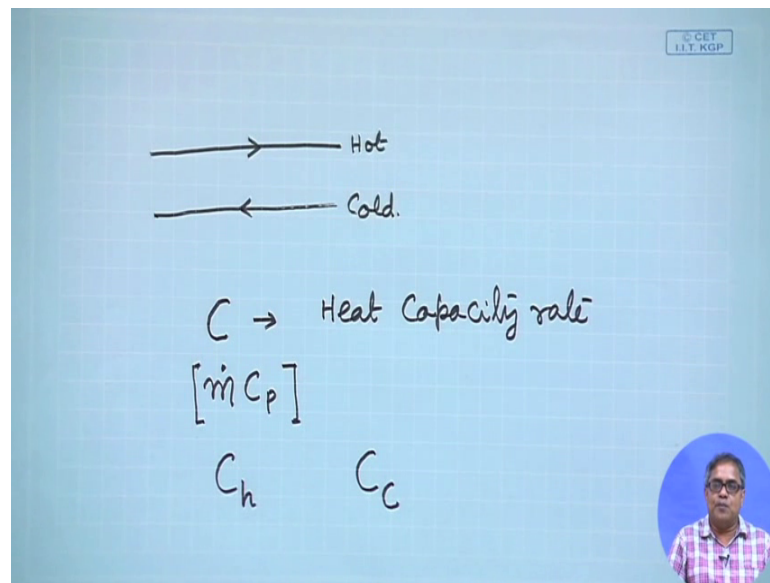 © CET
I.I.T. KGP
Hot
Cold.
C → Heat Capacity rate
[ṁ Cp]
Ch Cc